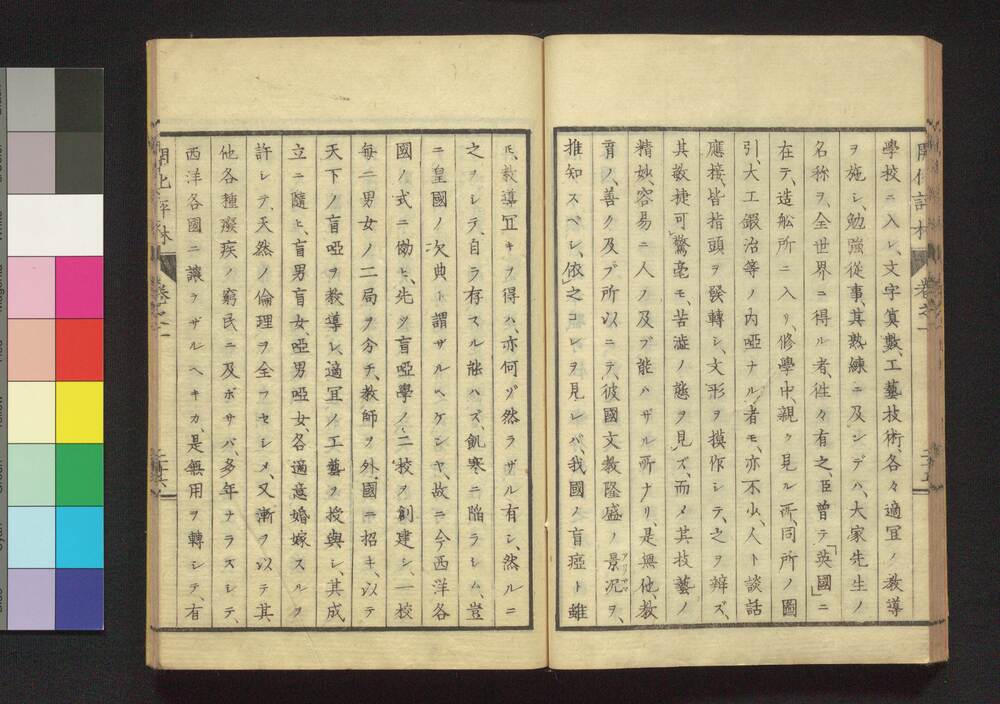 學校ニ入レ、文字算數、工藝技術、各々適冝ノ教導
ヲ施シ、勉強從事、其熟練ニ及ンデハ、大家先生ノ
名称ヲ、全世界ニ得ル者、徃々有之、臣曾テ「英國」ニ
在テ、造舩所ニ入リ、修學中、親ク見ル所、同所ノ圖
引、大工鍜冶等ノ内啞ナル者モ、亦不少、人ト談話
應接、皆指頭ヲ發轉シ、文形ヲ摸作シテ、之ヲ辨ズ、
其敏捷可驚毫モ、苦澁ノ態ヲ見ズ、而メ其技藝ノ
精妙、容易ニ人ノ及ブ能ハザル所ナリ、是無他教
育ノ、善ク及ブ所以ニテ、彼國文教隆盛ノ景況ヲ、
推知スベシ、依之コレヲ見レバ、我國ノ盲瘂ト雖
𪜈、教導冝キヲ得ハ、亦何ゾ然ラザル有ン、然ルニ
之ヲシテ、自ラ存スル能ハズ、飢寒ニ陥ラシム、豈
ニ皇國ノ欠典ト謂ザルヘケンヤ、故ニ今西洋各
國ノ式ニ傚ヒ、先ツ盲啞學ノ、二校ヲ創建シ、一校
毎ニ男女ノ二局ヲ分チ、教師ヲ外國ニ招キ、以テ
天下ノ盲啞ヲ教導シ、適冝ノ工藝ヲ授與シ、其成
立ニ隨ヒ、盲男盲女、啞男啞女、各適意婚嫁スルヲ
許シテ、天然ノ倫理ヲ全フセシメ、又漸ヲ以テ其
他各種癈疾ノ窮民ニ及ボサバ、多年ナラスシテ、
西洋各國ニ讓ラザルヘキカ、是無用ヲ轉シテ、有